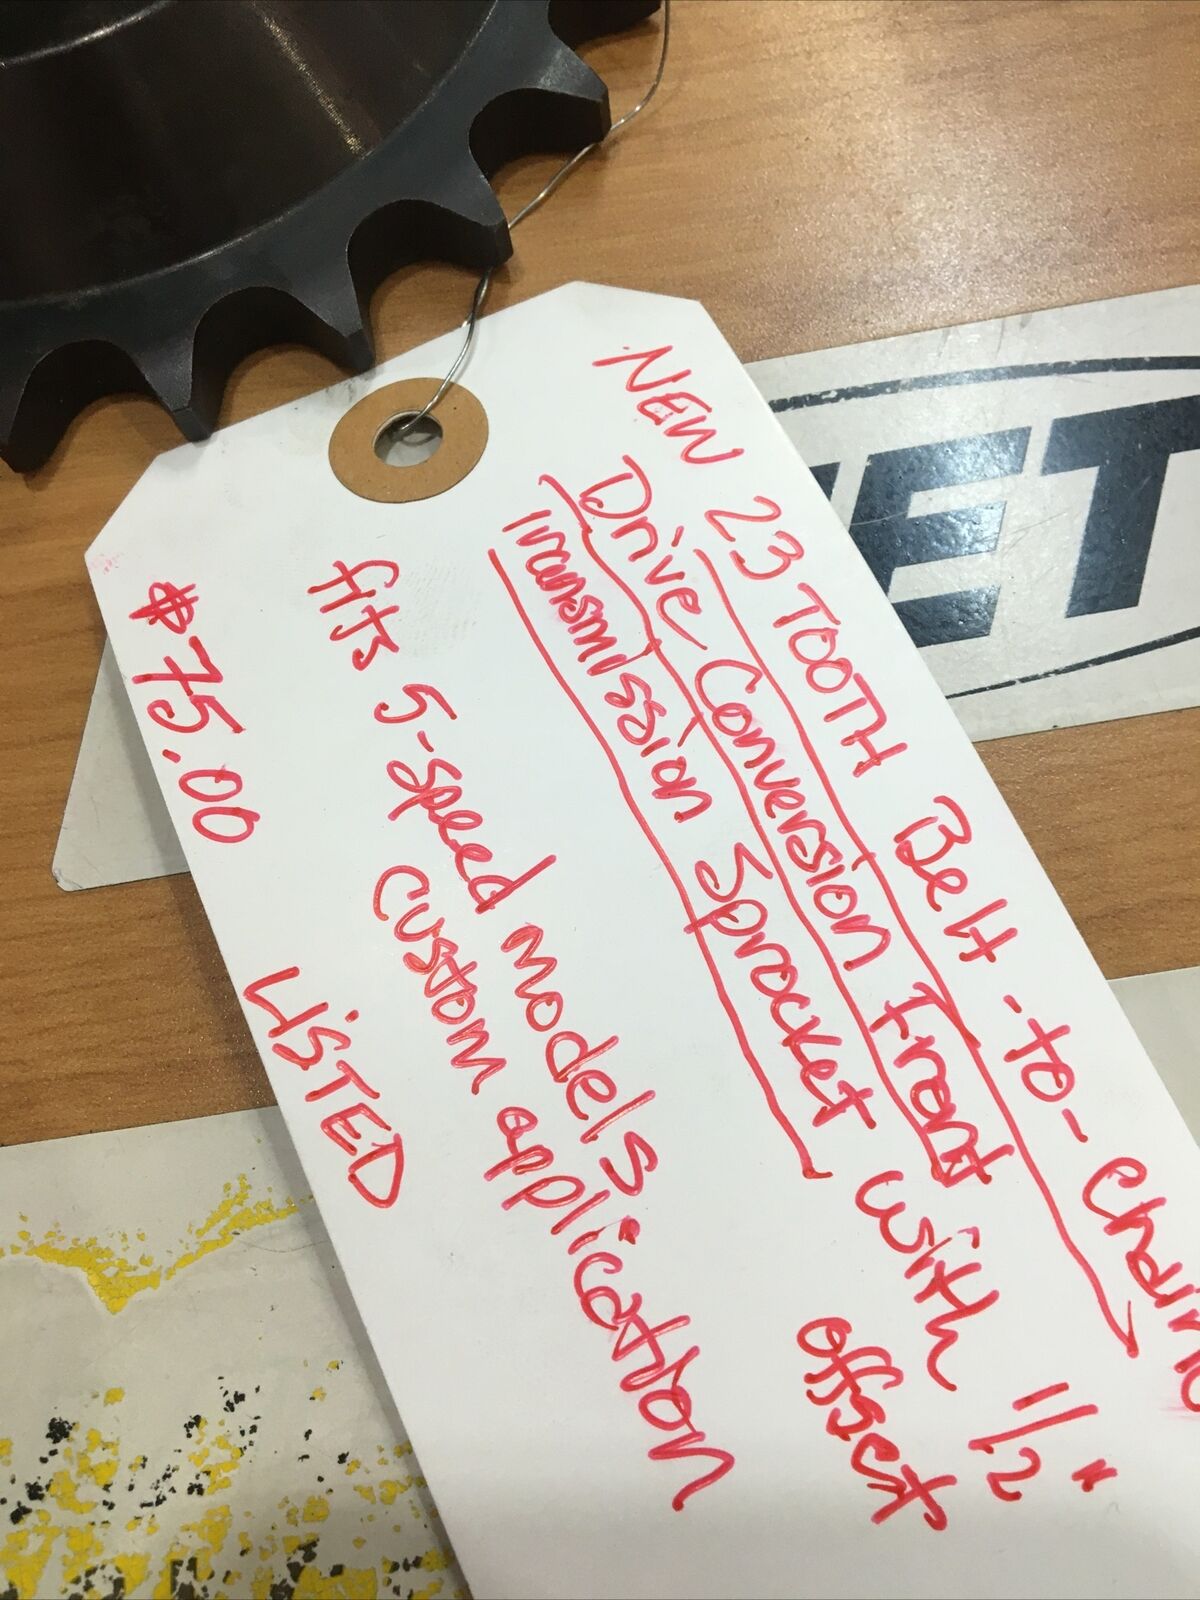 NEW 23 TOOTH Belt-to-chain
Drive Conversion Front
Transmission Sprocket with 1/2"
offset
fits 5-speed models
custom application
$75.00 LISTED
ET